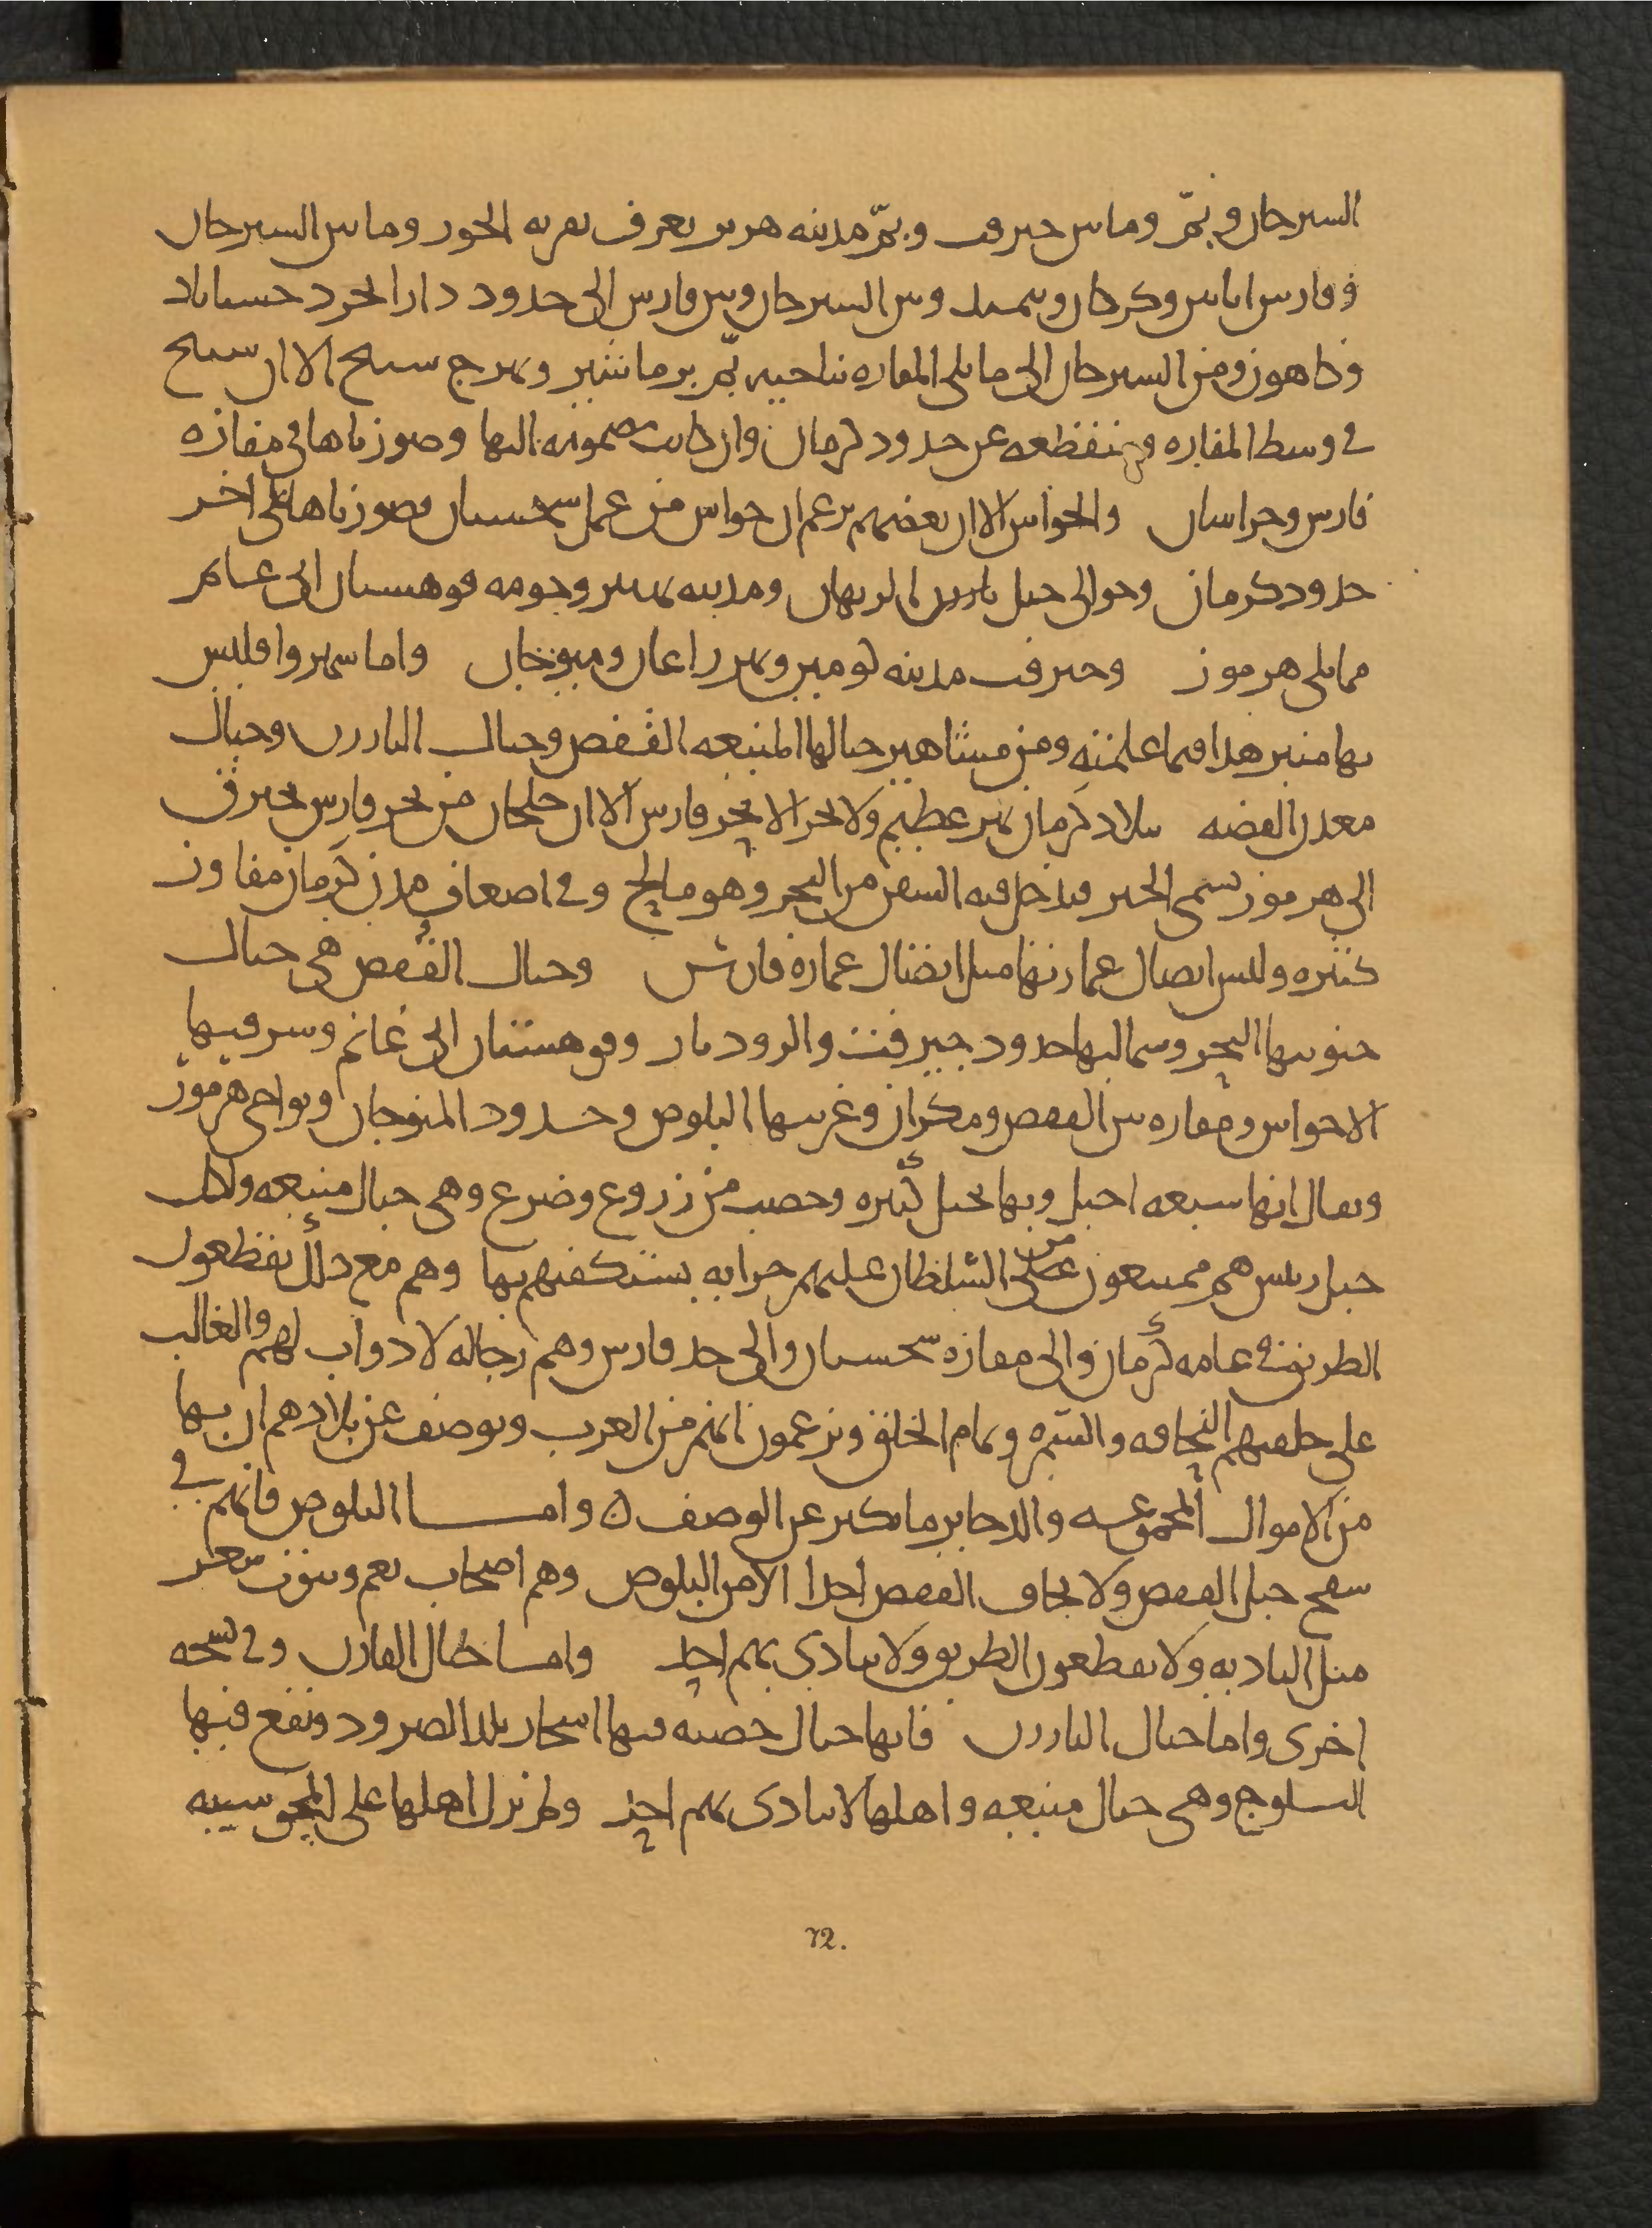 السيرجان وبمّ وما بين جيرفت وبمّ مدينة هرمز تعرف بقرية الجوز وما بين السيرجان
وفارس اناس وكردكان وبيمند وبين السيرجان وبين فارس الى حدود دارابجرد حسناباد
وكاهون ومن السيرجان الى ما يلي المفازه ناحيه بمّ برماشير ونهرج سنيج الا ان سنيج
في وسط المفازه منقطعه عن حدود كرمان وان كانت مضمومه اليها وصورناها في مفازه
فارس وخراسان والخواش الا ان بعضهم يزعم ان خواش من عمل سجستان وصورناها على اخر
حدود كرمان وحوالي جبل بارز الريقان ومدينه وجومه قوهستان ابي غانم
مما يلي هرموز وجيرفت مدينه كومين ونهر راغان ومنوجان واما شهروا فليس
بها منبر هذا فيما علمته ومن مشاهير جبالها المنيعه القفص وجبال البارز وجبال
معدن الفضه ببلاد كرمان نهر عظيم ولا بحر الا بحر فارس الا ان خليجان من بحر فارس يخرق
الى هرموز يسمى الجير فيدخل فيه السفن من البحر وهو مالح وفي اضعاف مدن كرمان مفاوز
كثيره وليس اتصال عمارتها مثل اتصال عماره فارس وجبال القفص هي جبال
جنوبيها البحر وشماليها حدود جيرفت والرودبار وقوهستان ابي غانم وشرقيها
الاخواش ومفازه بين القفص ومكران وغربيها البلوص وحدود المنوجان ونواحي هرموز
ويقال انها سبعه اجبل وبها نخيل كثيره وخصب من زروع وضرع وهي جبال منيعه ولكل
جبل رئيس هم ممتنعون من على السلطان عليهم جرايه يستكفهم بها وهم مع ذلك يقطعون
الطريق في عامه كرمان والى مفازه سجستان والى حد فارس وهم رجاله لا دواب لهم والغالب
على خلقهم النحافه والسّمره وتمام الخلق ويزعمون انهم من العرب ويوصف عن بلادهم ان بها
من الاموال المجموعه والذخاير ما يكثر عن الوصف ٥ واما البلوص فانهم في
سفح جبل القفص ولا يخاف القفص احدا الا من البلوص وهم اصحاب نعم وبيوت شعر
مثل الباديه ولا يقطعون الطريق ولا يتاذى بهم احد واما جبال القارن وفي نسخه
اخرى واما جبال البارز فانها جبال خصبه فيها اشجار بلد الصرود وتقع فيها
الثلوج وهي جبال منيعه واهلها لا يتاذى بهم احد ولم يزل اهلها على المجوسيه
72.